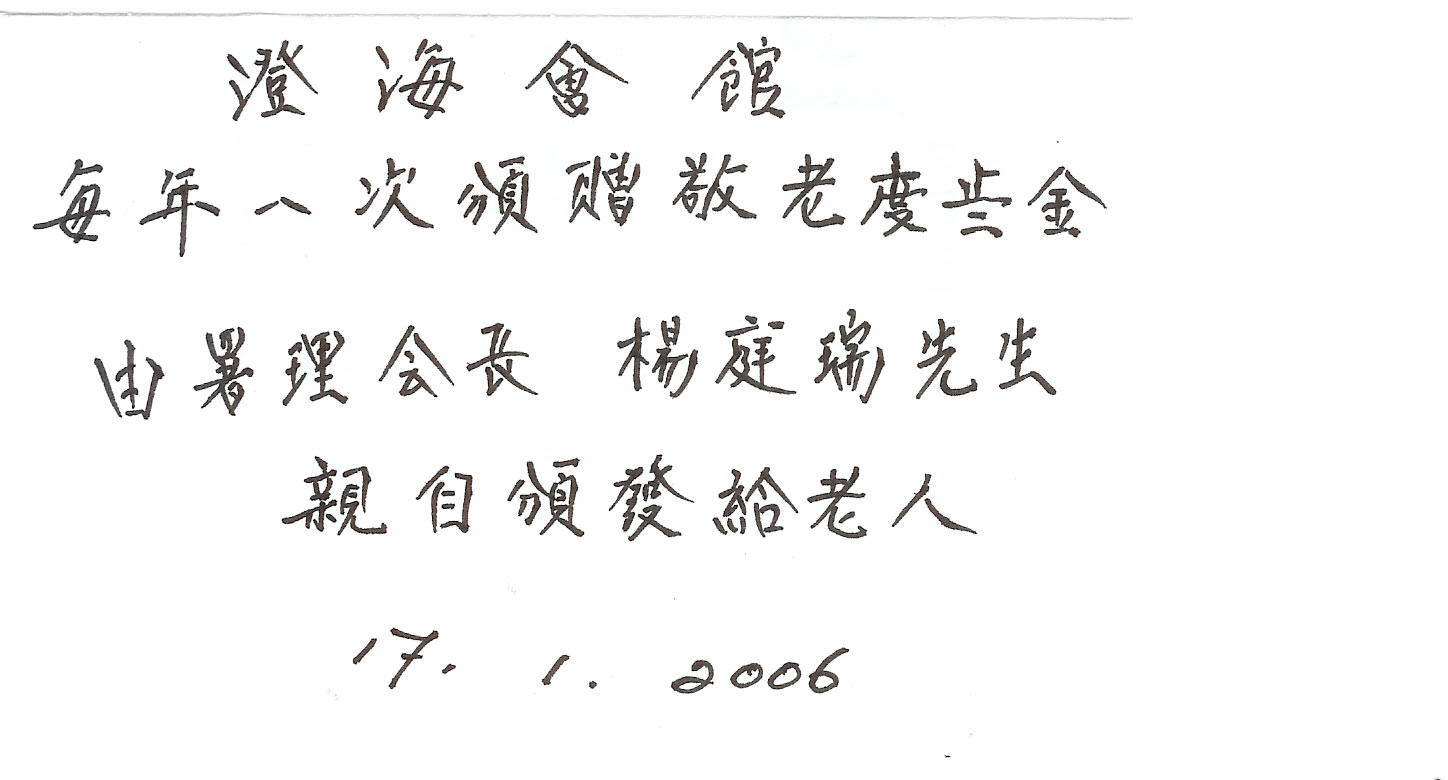 澄海會館
每年八次頒贈敬老度歲金
由署理会長 楊庭瑞先生
親自頒發給老人
17. 1. 2006